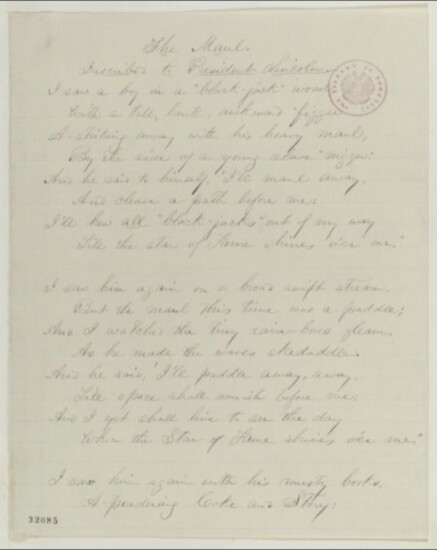 The Maul.
Inscribed to President Lincoln.
I saw a boy in a "black-jack" wood
With a tall, lank, awkward figger
A-striking away with his heavy maul,
By the side of a young slave "nigger:"
And he said to himself, "I'll maul away.
And cleave a path before me.
I'll hew all "black-jacks" out of my way
Till the star of Fame shines o'er me."
I saw him again on a broad swift stream.
But the maul this time was a paddle;
And I watched the tiny rain-bows gleam.
As he made the waves skedaddle.
And he said, "I'll paddle away, away.
Till space shall vanish before me.
And I yet shall live to see the day
When the Star of Fame shines o'er me."
I saw him again with his musty books.
A-pondering Coke and Story:
32085